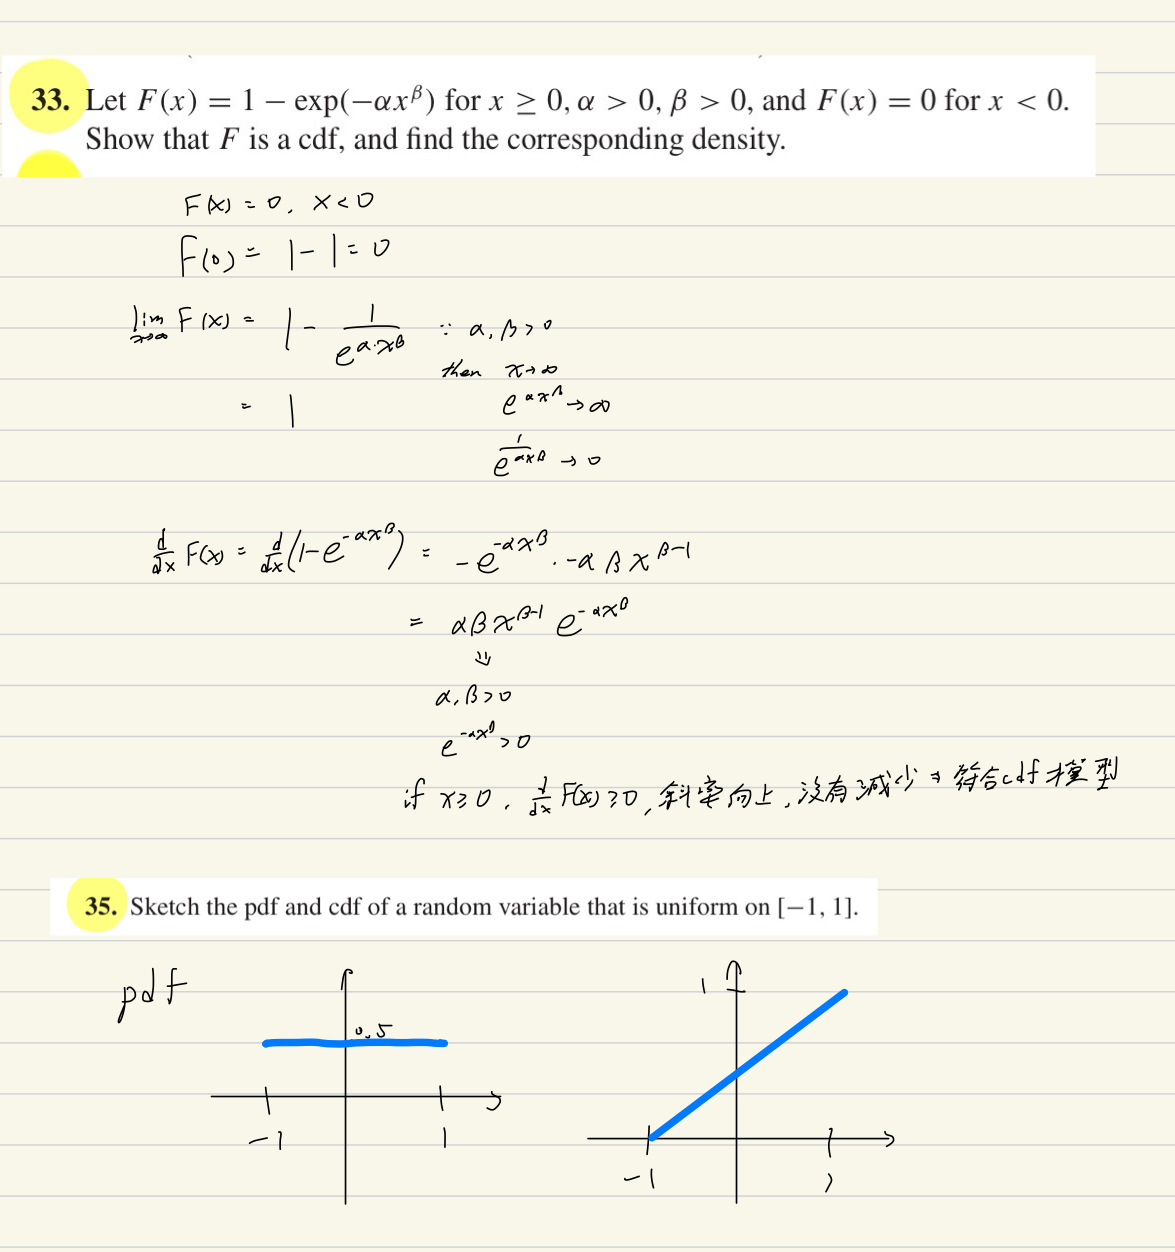 33. Let F(x) = 1 − exp(−αx^β) for x ≥ 0, α > 0, β > 0, and F(x) = 0 for x < 0.
Show that F is a cdf, and find the corresponding density.
F(x) = 0, x<0
F(0) = 1-1=0
lim x→∞ F(x) = 1 - 1/e^(α·x^β) ∵ α, β>0
then x→∞
= 1 e^(αx^β) → ∞
1/e^(αx^β) → 0
d/dx F(x) = d/dx (1-e^(-αx^β)) = -e^(-αx^β) · -αβx^(β-1)
= αβx^(β-1) e^(-αx^β)
⇓
α, β>0
e^(-αx^β) >0
if x≥0, d/dx F(x) ≥0, 斜率向上, 沒有減少 ⇒ 符合cdf模型
35. Sketch the pdf and cdf of a random variable that is uniform on [−1, 1].
pdf 1
0.5
-1 1 -1